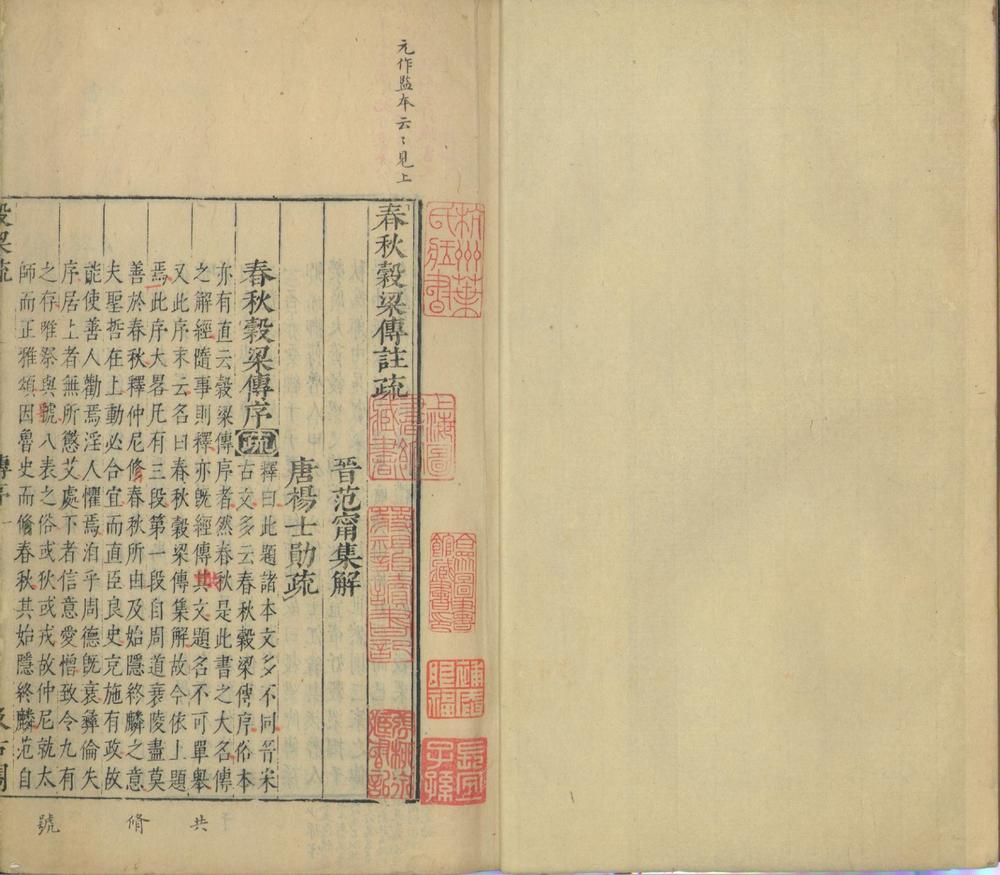 元作監本云〻見上
春秋穀梁傳註疏
晉范甯集解
唐楊士勛疏
春秋穀梁傳序
疏
釋曰此題諸本文多不同晉宋
古文多云春秋穀梁傳序俗本
亦有直云穀梁傳序者然春秋是此書之大名傳
之解經隨事則釋亦旣經傳其文題名不可單舉
又此序末云名曰春秋穀梁傳集解故今依上題
焉此序大畧凡有三段第一段自周道衰陵盡莫
善於春秋釋仲尼修春秋所由及始隱終麟之意
夫聖哲在上動必合宜而直臣良史克施有政故
能使善人勸焉淫人懼焉洎乎周德旣衰彝倫失
序居上者無所懲艾處下者信意愛憎致令九有
之存唯祭與號八表之俗或狄或戎故仲尼就太
師而正雅頌因魯史而脩春秋其始隱終麟范自
穀梁疏
傳序
一
汲古閣
共
脩
號
杭州葉氏藏書
上海圖書館藏書
合眾圖書館藏書印
長宜子孫